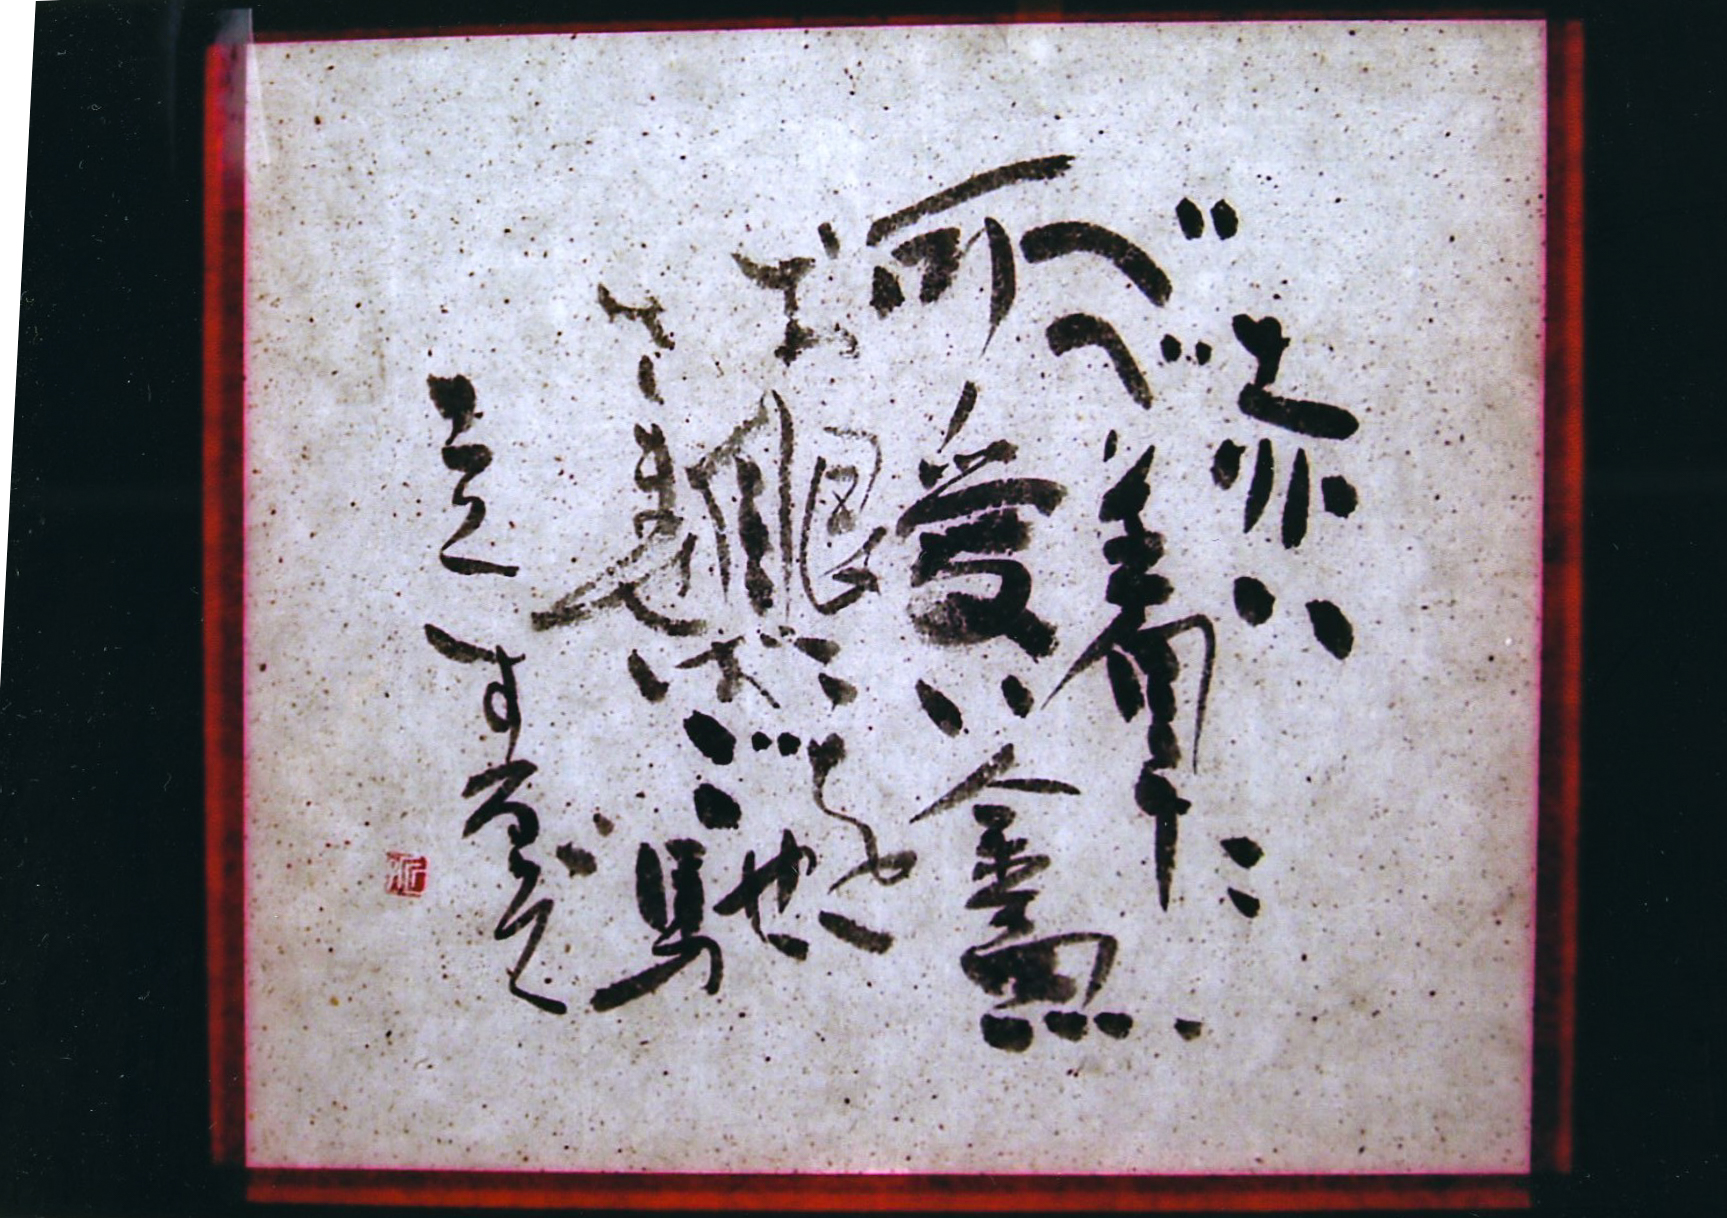 赤い
べべ着た
可愛い金魚
お眼々を
さませば
ご馳
走するぞ